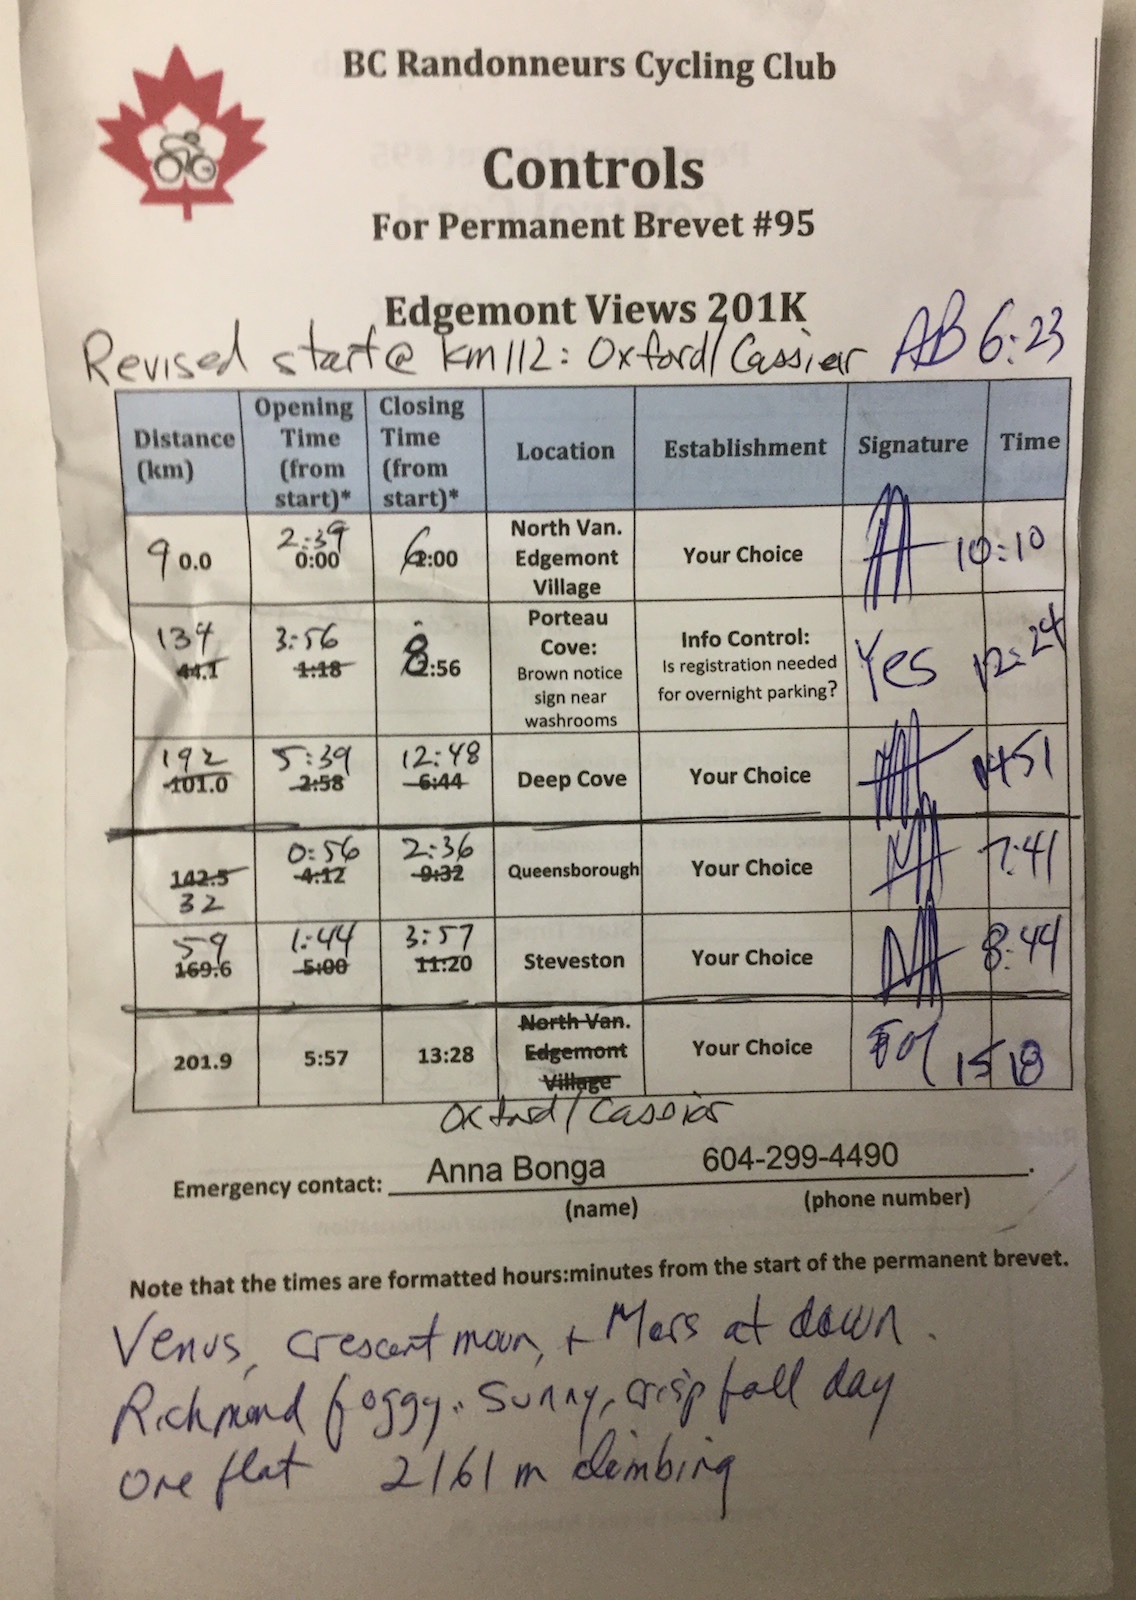 BC Randonneurs Cycling Club
Controls
For Permanent Brevet #95
Edgemont Views 201K
Revised start @ km 112: Oxford/Cassiar AB 6:23
Distance (km) Opening Time (from start)* Closing Time (from start)* Location Establishment Signature Time
90 0.0 2:39 0:00 6:00 North Van. Edgemont Village Your Choice 10:10
134 44.1 3:56 1:18 8:56 Porteau Cove: Brown notice sign near washrooms Info Control: Is registration needed for overnight parking? Yes 12:24
192 101.0 5:39 2:58 12:48 6:44 Deep Cove Your Choice 1451
142.5 32 0:56 4:12 2:36 9:32 Queensborough Your Choice 7:41
59 169.6 1:44 5:00 3:57 11:20 Steveston Your Choice 8:44
201.9 5:57 13:28 North Van. Edgemont Village Your Choice 1518
Oxford/Cassiar
Emergency contact: Anna Bonga 604-299-4490
(name) (phone number)
Note that the times are formatted hours:minutes from the start of the permanent brevet.
Venus, crescent moon, + Mars at dawn.
Richmond foggy. Sunny, crisp fall day
One flat 2161 m climbing